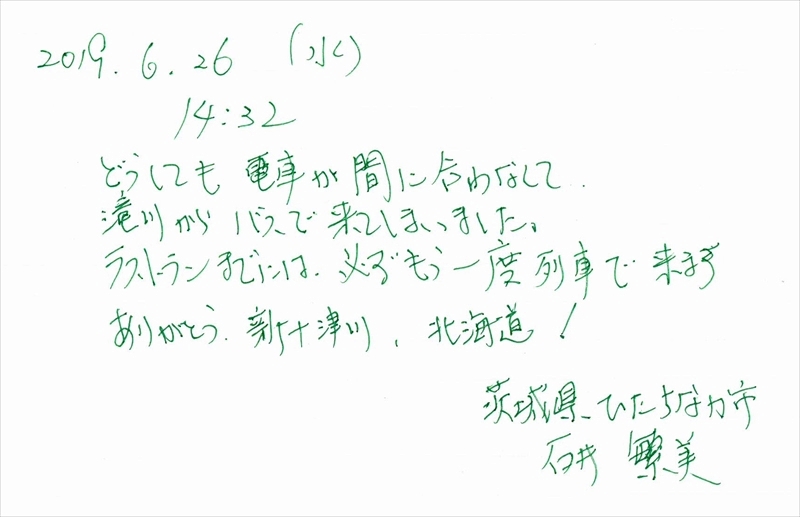 2019.6.26 (水)
14:32
どうしても電車が間に合わなくて
滝川からバスで来てしまいました。
ラストランまでには、必ずもう一度列車で来ます
ありがとう、新十津川、北海道!
茨城県、ひたちなか市
石井 繁美